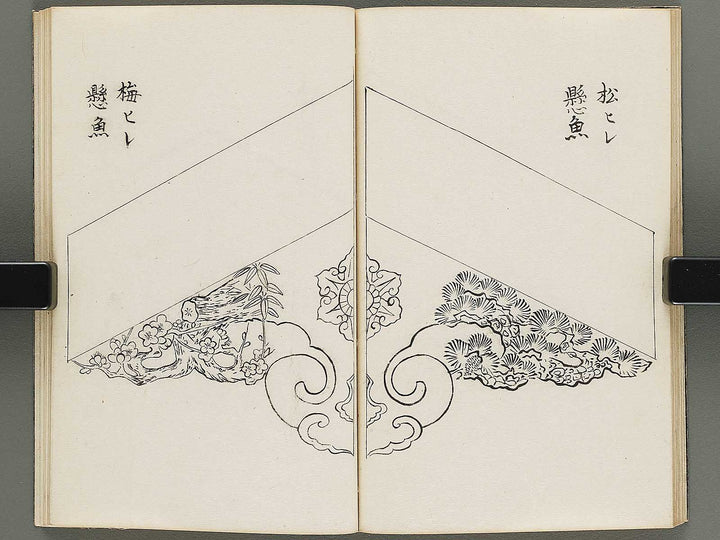 松ヒレ
懸魚
梅ヒレ
懸魚